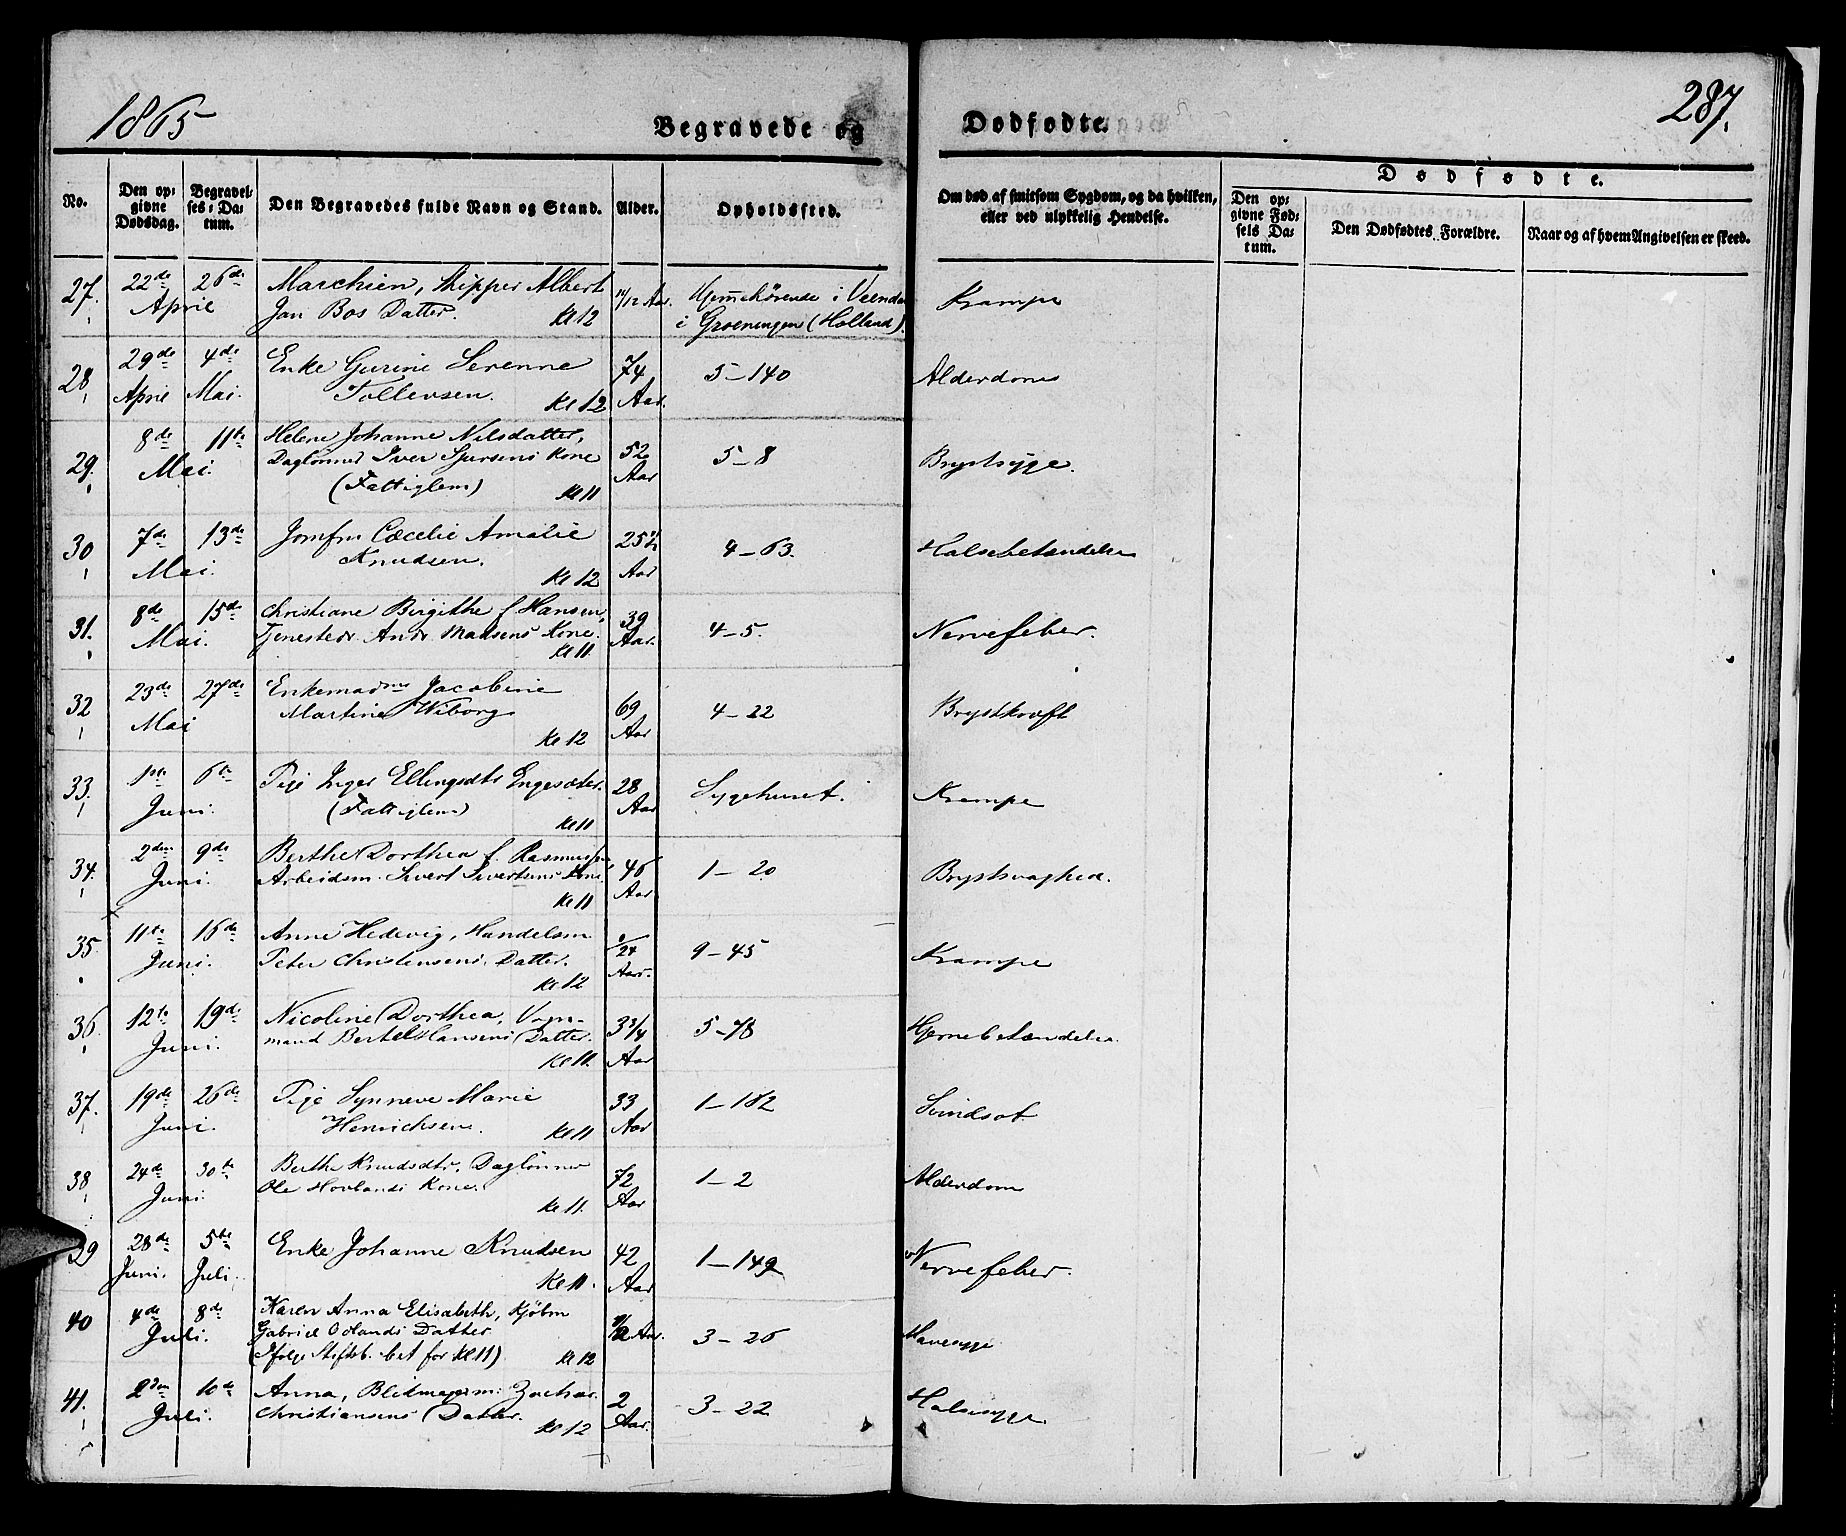 1865
Begravede og Dødfødte.
287.
No.
Den opgivne Dødsdag.
Begravelses-Datum.
Den Begravedes fulde Navn og Stand.
Alder.
Opholdssted.
Om død af smitsom Sygdom, og da hvilken, eller ved ulykkelig Hendelse.
Dødfødte.
Den opgivne Fødsels Datum.
Den Dødfødtes Forældre.
Naar og af hvem Angivelsen er skeed.
27. 22de 26de Marchien, Skipper Albert 11/12 Aar. Hjemmehørende i Veendam Krampe
April Jan Bos Datter. Kl 12 i Groeningen (Holland).
28 29de 4de Enke Gurine Serenne 74 5-140 Alderdoms
April Mai. Tollevsen. Kl 12 Aar.
29. 8de 11te Helene Johanne Nilsdatter, 52 5-8 Brystsyge.
Mai Daglønner Iver Sjursens Kone Aar
(Fattiglem) Kl 11
30 7de 13de Jomfru Cæcelie Amalie 25 1/2 4-63. Halsebetændelse
Mai. Knudsen. Kl 12 Aar
31. 8de 15de Christiane Birgithe f. Hansen, 39 4-5. Nervefeber.
Mai. Tjenestedr. Andr. Madsens Kone. Aar. Kl 11.
32 23de 27de Enkemadme Jacobine 69 4-22 Brystkræft
Mai Martine Wiborg Kl 12 Aar
33. 1ste 6te Pige Inger Ellingsdtr Engesæter. 28 Sygehuset. Krampe
Juni. (Fattiglem) Kl 11 Aar
34. 2den 9de Berthe Dorthea f. Rasmussen 46 1-20 Brystsvaghed.
Juni. Arbeidsm. Sivert Sivertsens Kone. Kl 11 Aar
35. 11te 16de Anne Hedevig, Handelsm /24 9-45 Krampe
Juni. Peter Christensens Datter. Kl 12 Aar.
36. 12te 19de Nicoline Dorthea, Vogn- 3 3/4 5-78 Hjernebetændelse.
Juni. mand Bertel Hansens Datter. Kl 11. Aar
37. 19de 26de Pige Synneve Marie 33 1-182 Svindsot
Juni. Henrichsen. Kl 11 Aar
38. 24de 30te Berthe Knudsdtr. Daglønner 72 1-2 Alderdom
Juni. Ole Hovlands Kone. Kl 11. Aar
39 28de 5te Enke Johanne Knudsen 42 1-149 Nervefeber.
Juni. Juli. Kl 11. Aar
40 4de 8de Karen Anna Elisabeth, Kjøbm 1/2 Aar. 3-26 Mavesyge
Juli. Gabriel Odlands Datter
(Ifølge Stiftsb. bet for Kl 11). Kl 12
41. 2den 10de Anna, Blikmagerm. Zachar. 2 3-22 Halssyge.
Juli. Christiansens Datter. Kl 12 Aar.